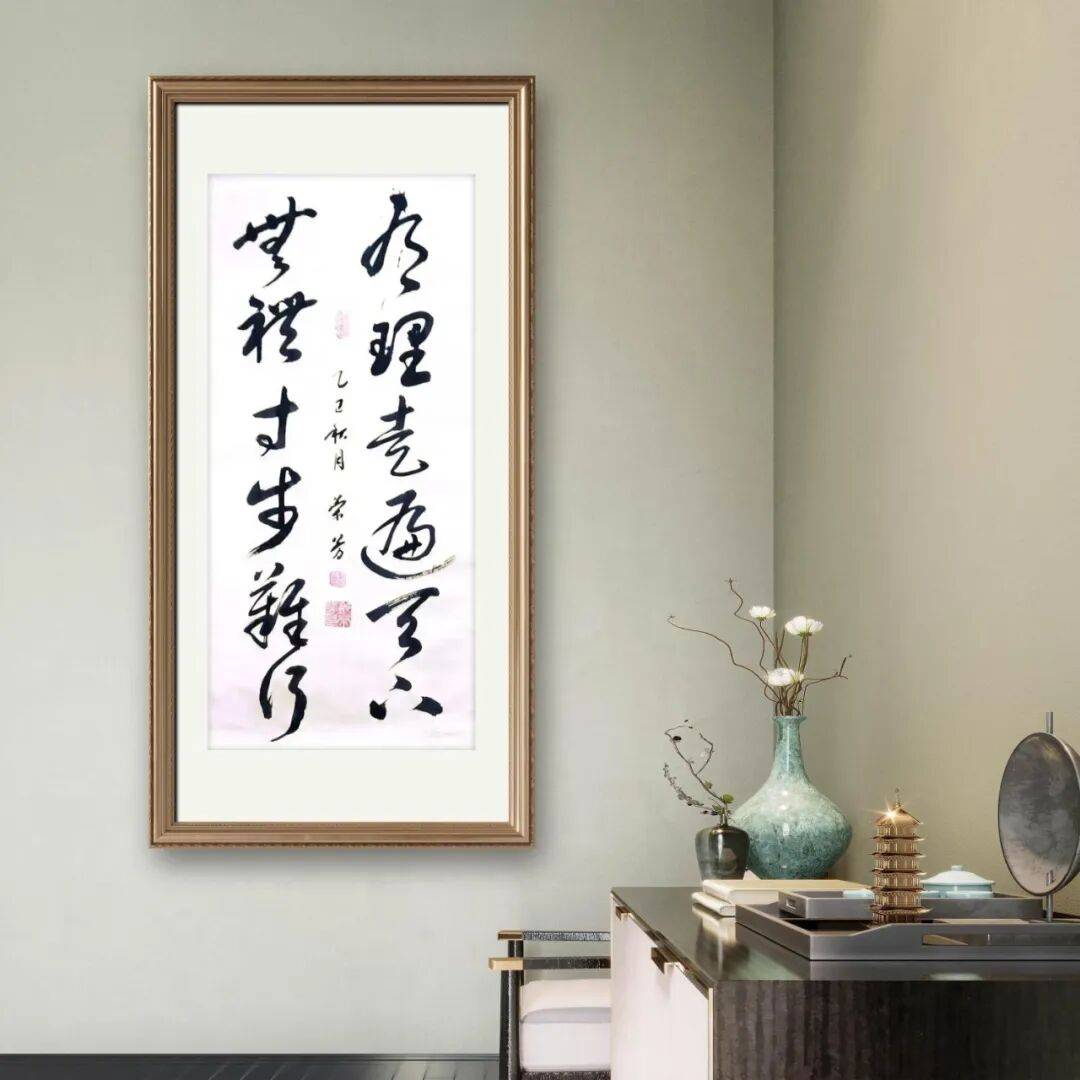 有理走遍天下
無禮寸步難行
乙巳秋月 荣芳